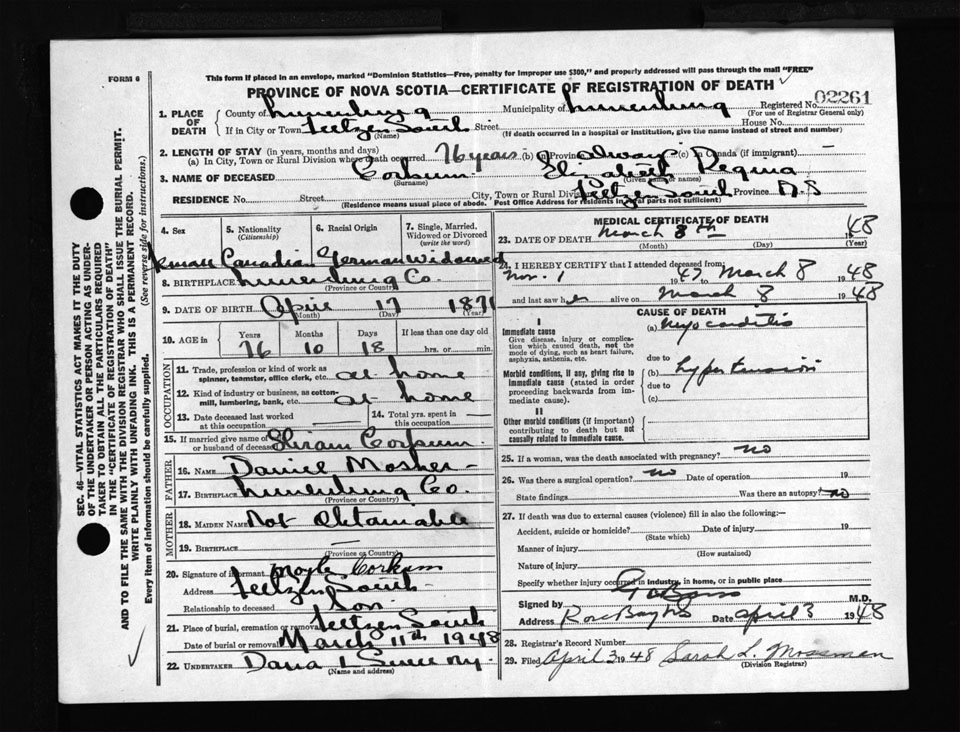 FORM 6
This form if placed in an envelope, marked "Dominion Statistics—Free, penalty for improper use $300," and properly addressed will pass through the mail "FREE"
PROVINCE OF NOVA SCOTIA—CERTIFICATE OF REGISTRATION OF DEATH
02261
1. PLACE OF DEATH
County of Lunenburg Municipality of Lunenburg Registered No.
(For use of Registrar General only)
If in City or Town Feltzen South Street House No.
(Name) (If death occurred in a hospital or institution, give the name instead of street and number)
2. LENGTH OF STAY (in years, months and days)
(a) In City, Town or Rural Division where death occurred 76 years (b) in Province always (c) In Canada (if immigrant) —
3. NAME OF DECEASED Corkum Elizabeth Regina
(Surname) (Given name or names)
RESIDENCE No. Street City, Town or Rural Division Feltzen South Province N.S
(Residence means usual place of abode. Post Office Address for residents in rural parts not sufficient)
4. Sex
5. Nationality (Citizenship)
6. Racial Origin
7. Single, Married, Widowed or Divorced (write the word)
Female Canadian German Widowed
8. BIRTHPLACE Lunenburg Co.
(Province or Country)
9. DATE OF BIRTH April 17 1871
(Month) (Day) (Year)
10. AGE in
Years Months Days If less than one day old
76 10 18 hrs. or min.
OCCUPATION
11. Trade, profession or kind of work as spinner, teamster, office clerk, etc. at home
12. Kind of industry or business, as cotton-mill, lumbering, bank, etc. at home
13. Date deceased last worked at this occupation
14. Total yrs. spent in this occupation —
15. If married give name of wife or husband of deceased Hiram Corkum
FATHER
16. NAME Daniel Mosher
17. BIRTHPLACE Lunenburg Co.
(Province or Country)
MOTHER
18. MAIDEN NAME Not obtainable
19. BIRTHPLACE —
(Province or Country)
20. Signature of informant Corkum
Address Feltzen South
Relationship to deceased Son
21. Place of burial, cremation or removal Feltzen South
Date of burial or removal March 11th 1948
22. UNDERTAKER Dana L
(Name and address)
MEDICAL CERTIFICATE OF DEATH
23. DATE OF DEATH March 8th 1948
(Month) (Day) (Year)
24. I HEREBY CERTIFY that I attended deceased from
Nov. 1 1947 March 8 1948
and last saw her alive on March 8 1948
CAUSE OF DEATH
I
Immediate cause
Give disease, injury or complication which caused death, not the mode of dying, such as heart failure, asphyxia, asthenia, etc.
(a) Myocarditis
due to
Morbid conditions, if any, giving rise to immediate cause (stated in order proceeding backwards from immediate cause).
(b) hypertension
due to
(c)
II
Other morbid conditions (if important) contributing to death but not causally related to immediate cause.
25. If a woman, was the death associated with pregnancy? no
26. Was there a surgical operation? no Date of operation 19
State findings Was there an autopsy? no
27. If death was due to external causes (violence) fill in also the following:—
Accident, suicide or homicide? Date of injury 19
(State which)
Manner of injury
(How sustained)
Nature of injury
Specify whether injury occurred in industry, in home, or in public place
Signed by M.D.
Address Rose Bay NS Date April 3 1948
28. Registrar's Record Number
29. Filed April 3 1948 Sarah L. Moseman
(Division Registrar)
SEC. 46—VITAL STATISTICS ACT MAKES IT THE DUTY
OF THE UNDERTAKER OR PERSON ACTING AS UNDER-
TAKER TO OBTAIN ALL THE PARTICULARS REQUIRED
IN THE "CERTIFICATE OF REGISTRATION OF DEATH"
AND TO FILE THE SAME WITH THE DIVISION REGISTRAR WHO SHALL ISSUE THE BURIAL PERMIT.
WRITE PLAINLY WITH UNFADING INK. THIS IS A PERMANENT RECORD.
Every item of information should be carefully supplied. (See reverse side for instructions.)